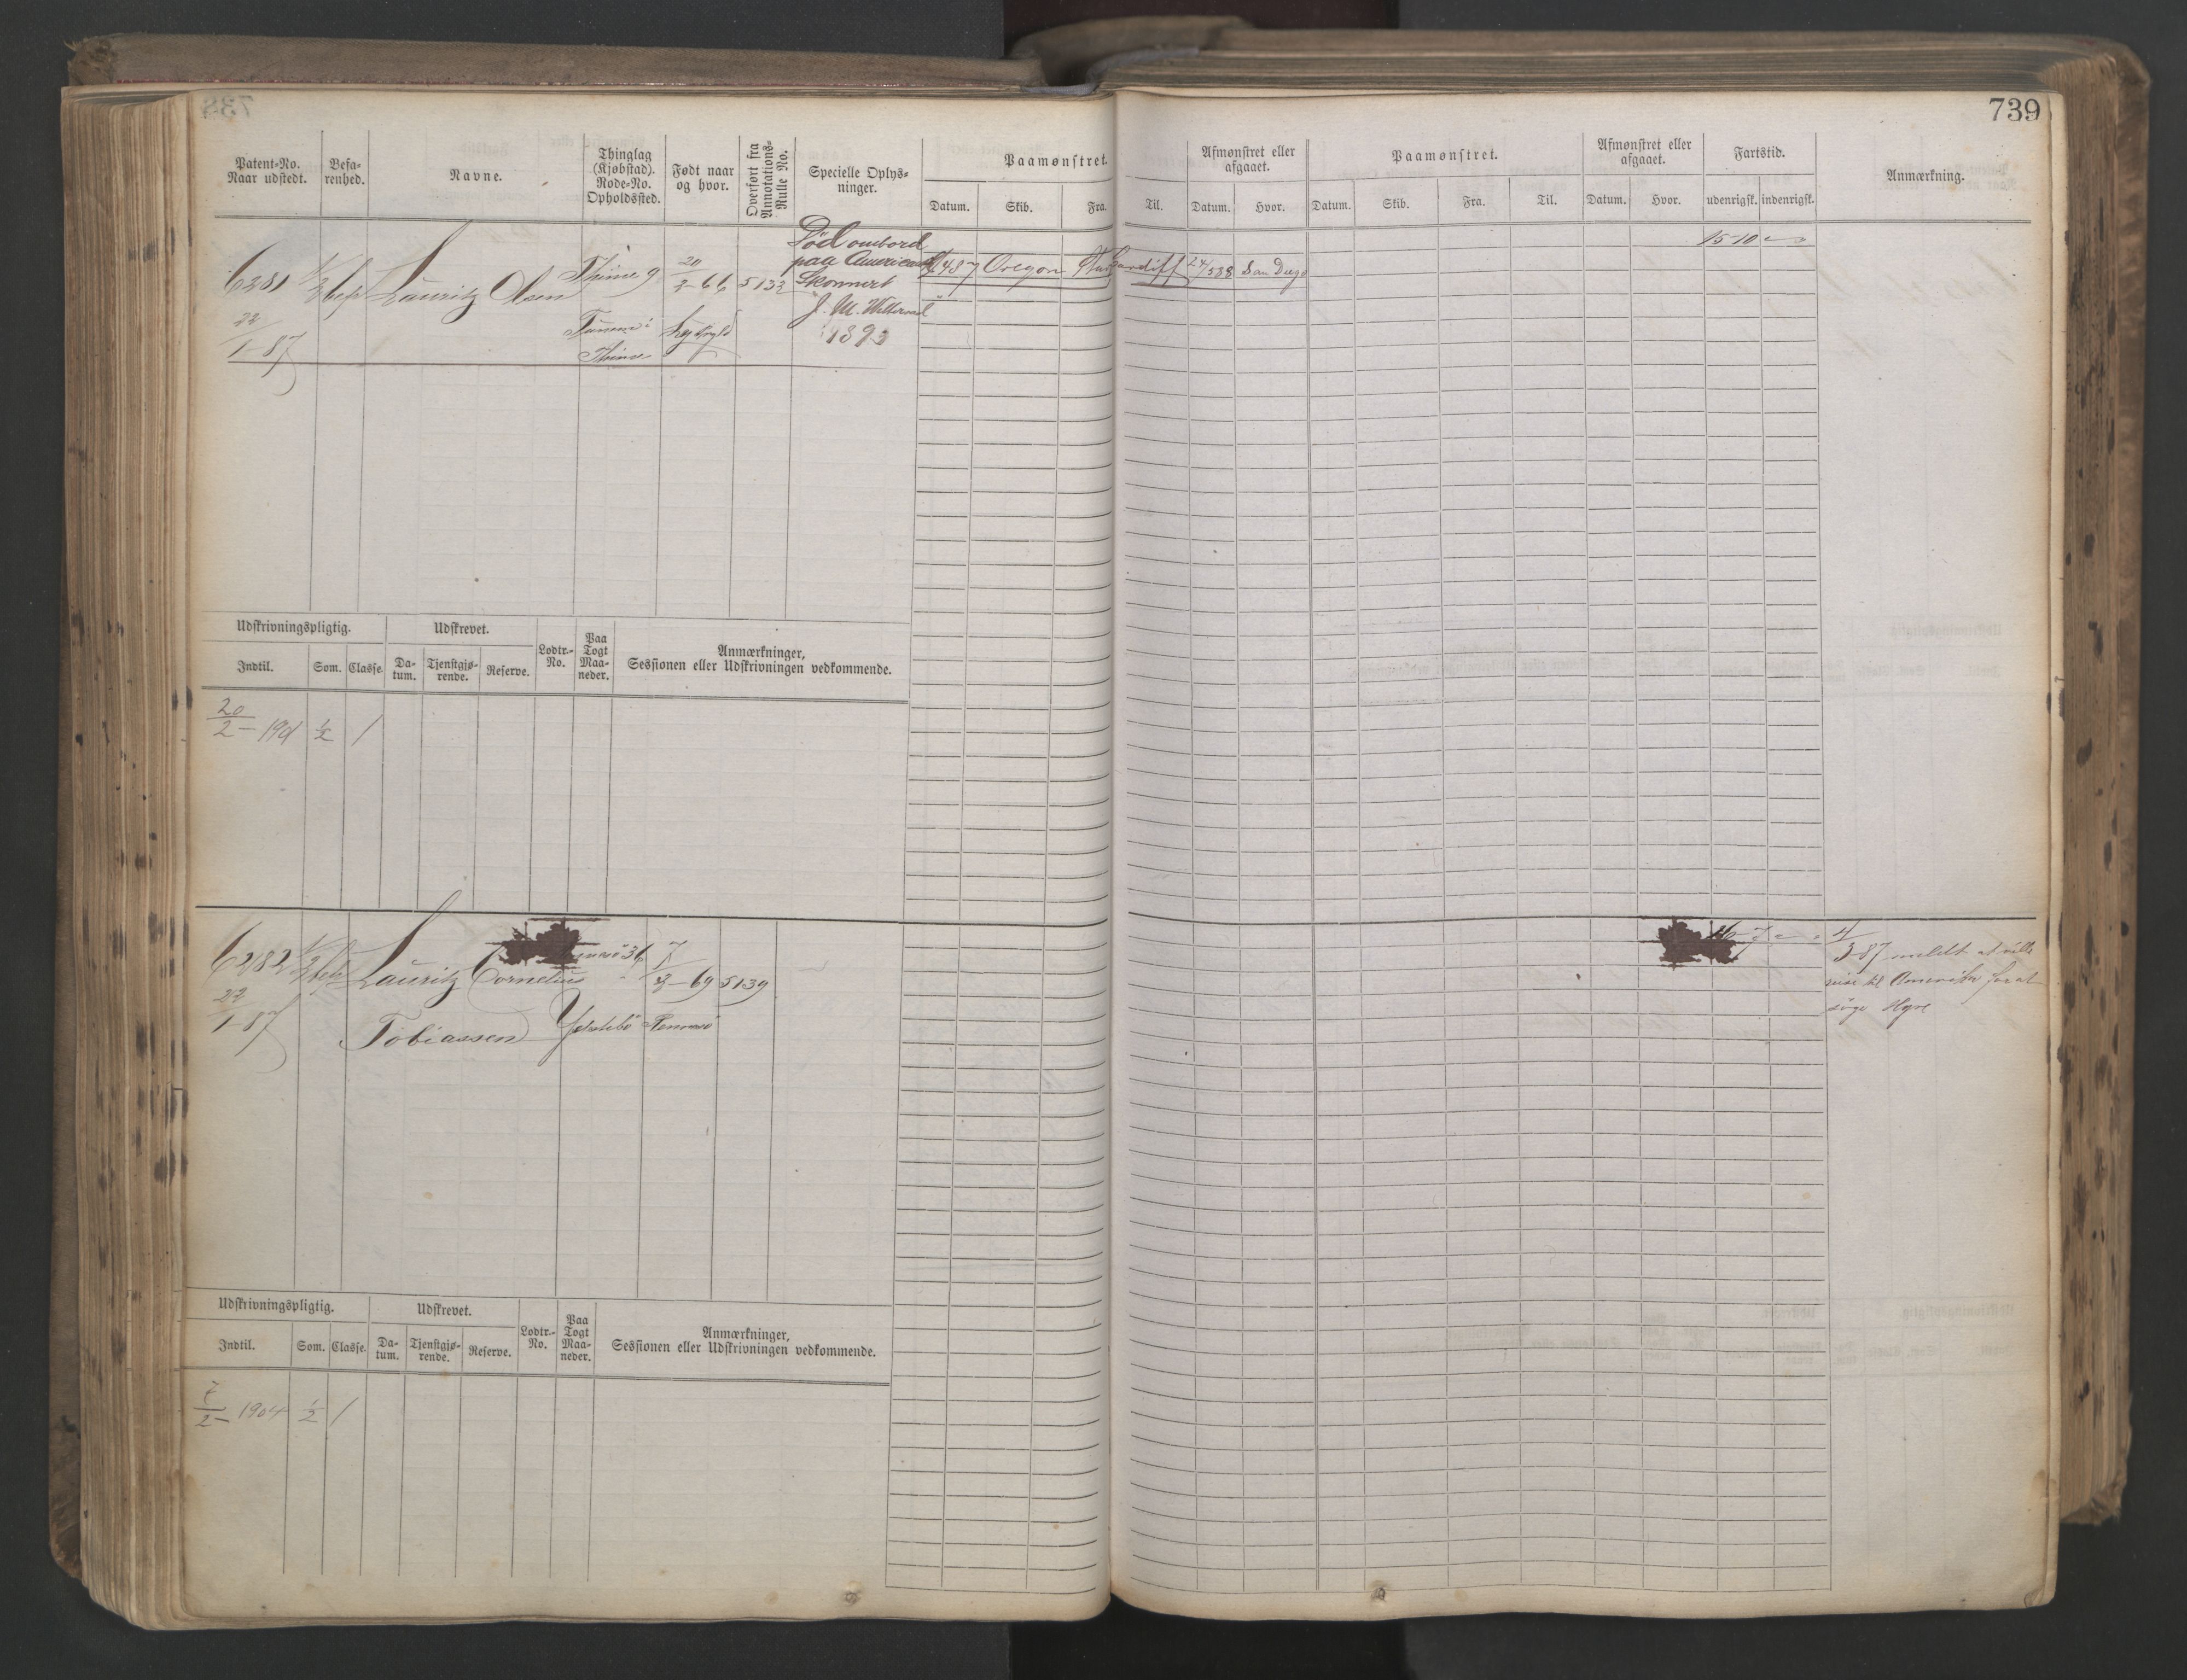 739
Patent-No. Naar udstedt.
Befarenhed.
Navne.
Thinglag (Kjøbstad). Rode-No. Opholdssted.
Født naar og hvor.
Overført fra Annotations-Rulle No.
Specielle Oplysninger.
Paamønstret.
Datum. Skib. Fra. Til.
Afmønstret eller afgaaet.
Datum. Hvor.
Paamønstret.
Datum. Skib. Fra. Til.
Afmønstret eller afgaaet.
Datum. Hvor.
Fartstid.
udenrigsk. indenrigsk.
Anmærkning.
6281 1/2 bef Lauritz Olsen
22/1-87
20/2-66 5133
Död ombord
paa Americansk
Skonnert
J. M.
1893
487 Oregon Cardiff 24/5 88 San Diego
15-10
Udskrivningspligtig.
Indtil. Som. Classe.
Udskrevet.
Datum. Tjenstgjørende. Reserve.
Lodtr.-No.
Paa Togt Maaneder.
Anmærkninger,
Sessionen eller Udskrivningen vedkommende.
20/2-1901 1/2 1
6282 1/2 bef Lauritz Cornelius
Tobiassen
22/1-87
36
7/2-69 5139
3-87 meldt at ville
reise til Amerika for at
söge Hyre
Udskrivningspligtig.
Indtil. Som. Classe.
Udskrevet.
Datum. Tjenstgjørende. Reserve.
Lodtr.-No.
Paa Togt Maaneder.
Anmærkninger,
Sessionen eller Udskrivningen vedkommende.
7/2-1904 1/2 1